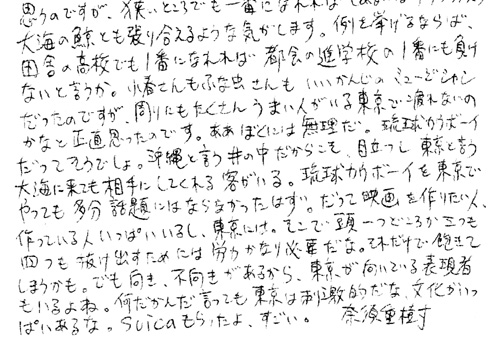 思うのですが、狭いところでも一番になれれば
大海の鯨とも張り合えるような気がします。例を挙げるならば、
田舎の高校でも1番になれれば都会の進学校の1番にも負け
ないと言うか。小春さんもふな虫さんもいいかんじのミュージシャン
だったのですが、周りにもたくさんうまい人がいる東京で潰れないの
かなと正直思ったのです。ああぼくには無理だ。琉球カウボーイ
だってそうでしょ。沖縄と言う井の中だからこそ、目立つし東京と言う
大海に来ても相手にしてくれる客がいる。琉球カウボーイを東京で
やっても多分話題にはならなかったはず。だって映画を作りたい人、
作っている人いっぱいいるし、東京には。そこで頭一つどころか三つも
四つも抜け出すためには労力かなり必要だな。それだけで飽きて
しまうかも。でも向き、不向きがあるから、東京が向いている表現者
もいるよね。何だかんだ言っても東京は刺激的だな、文化がいっ
ぱいあるな。Suicaもらったよ、すごい。 奈須重樹